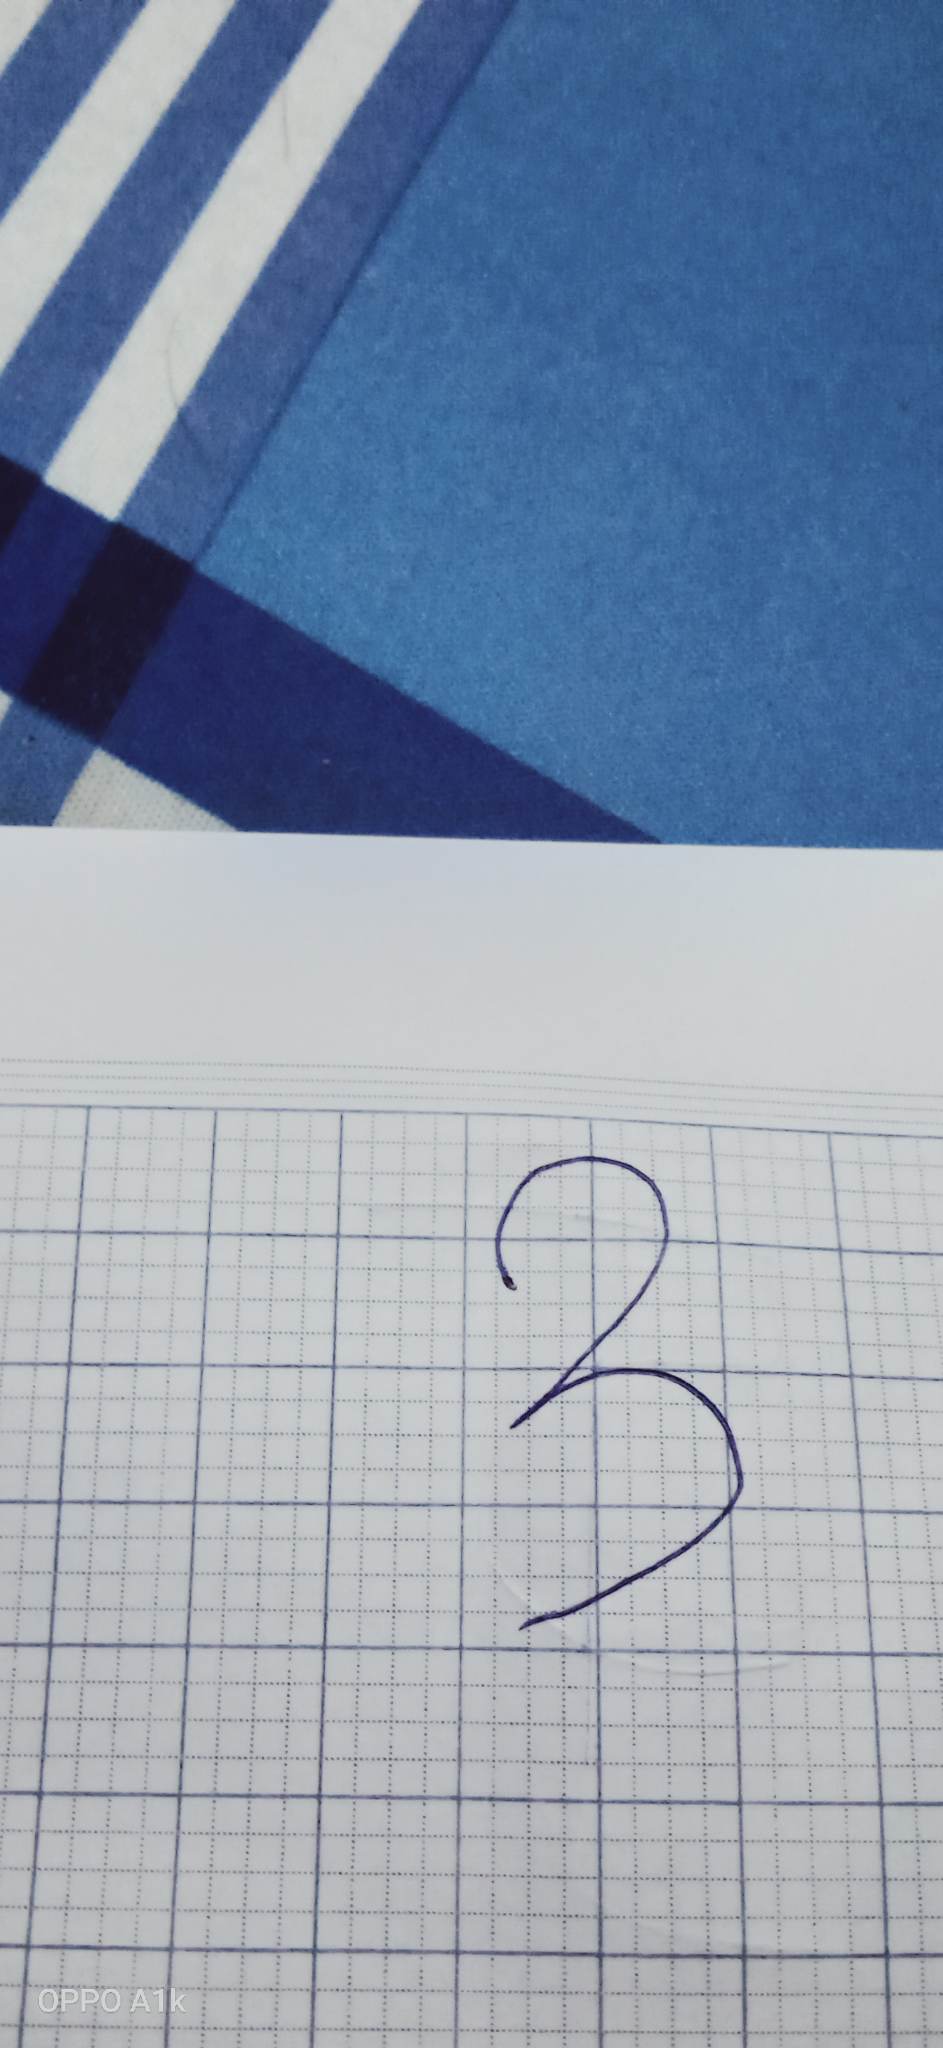 3
OPPO A1k